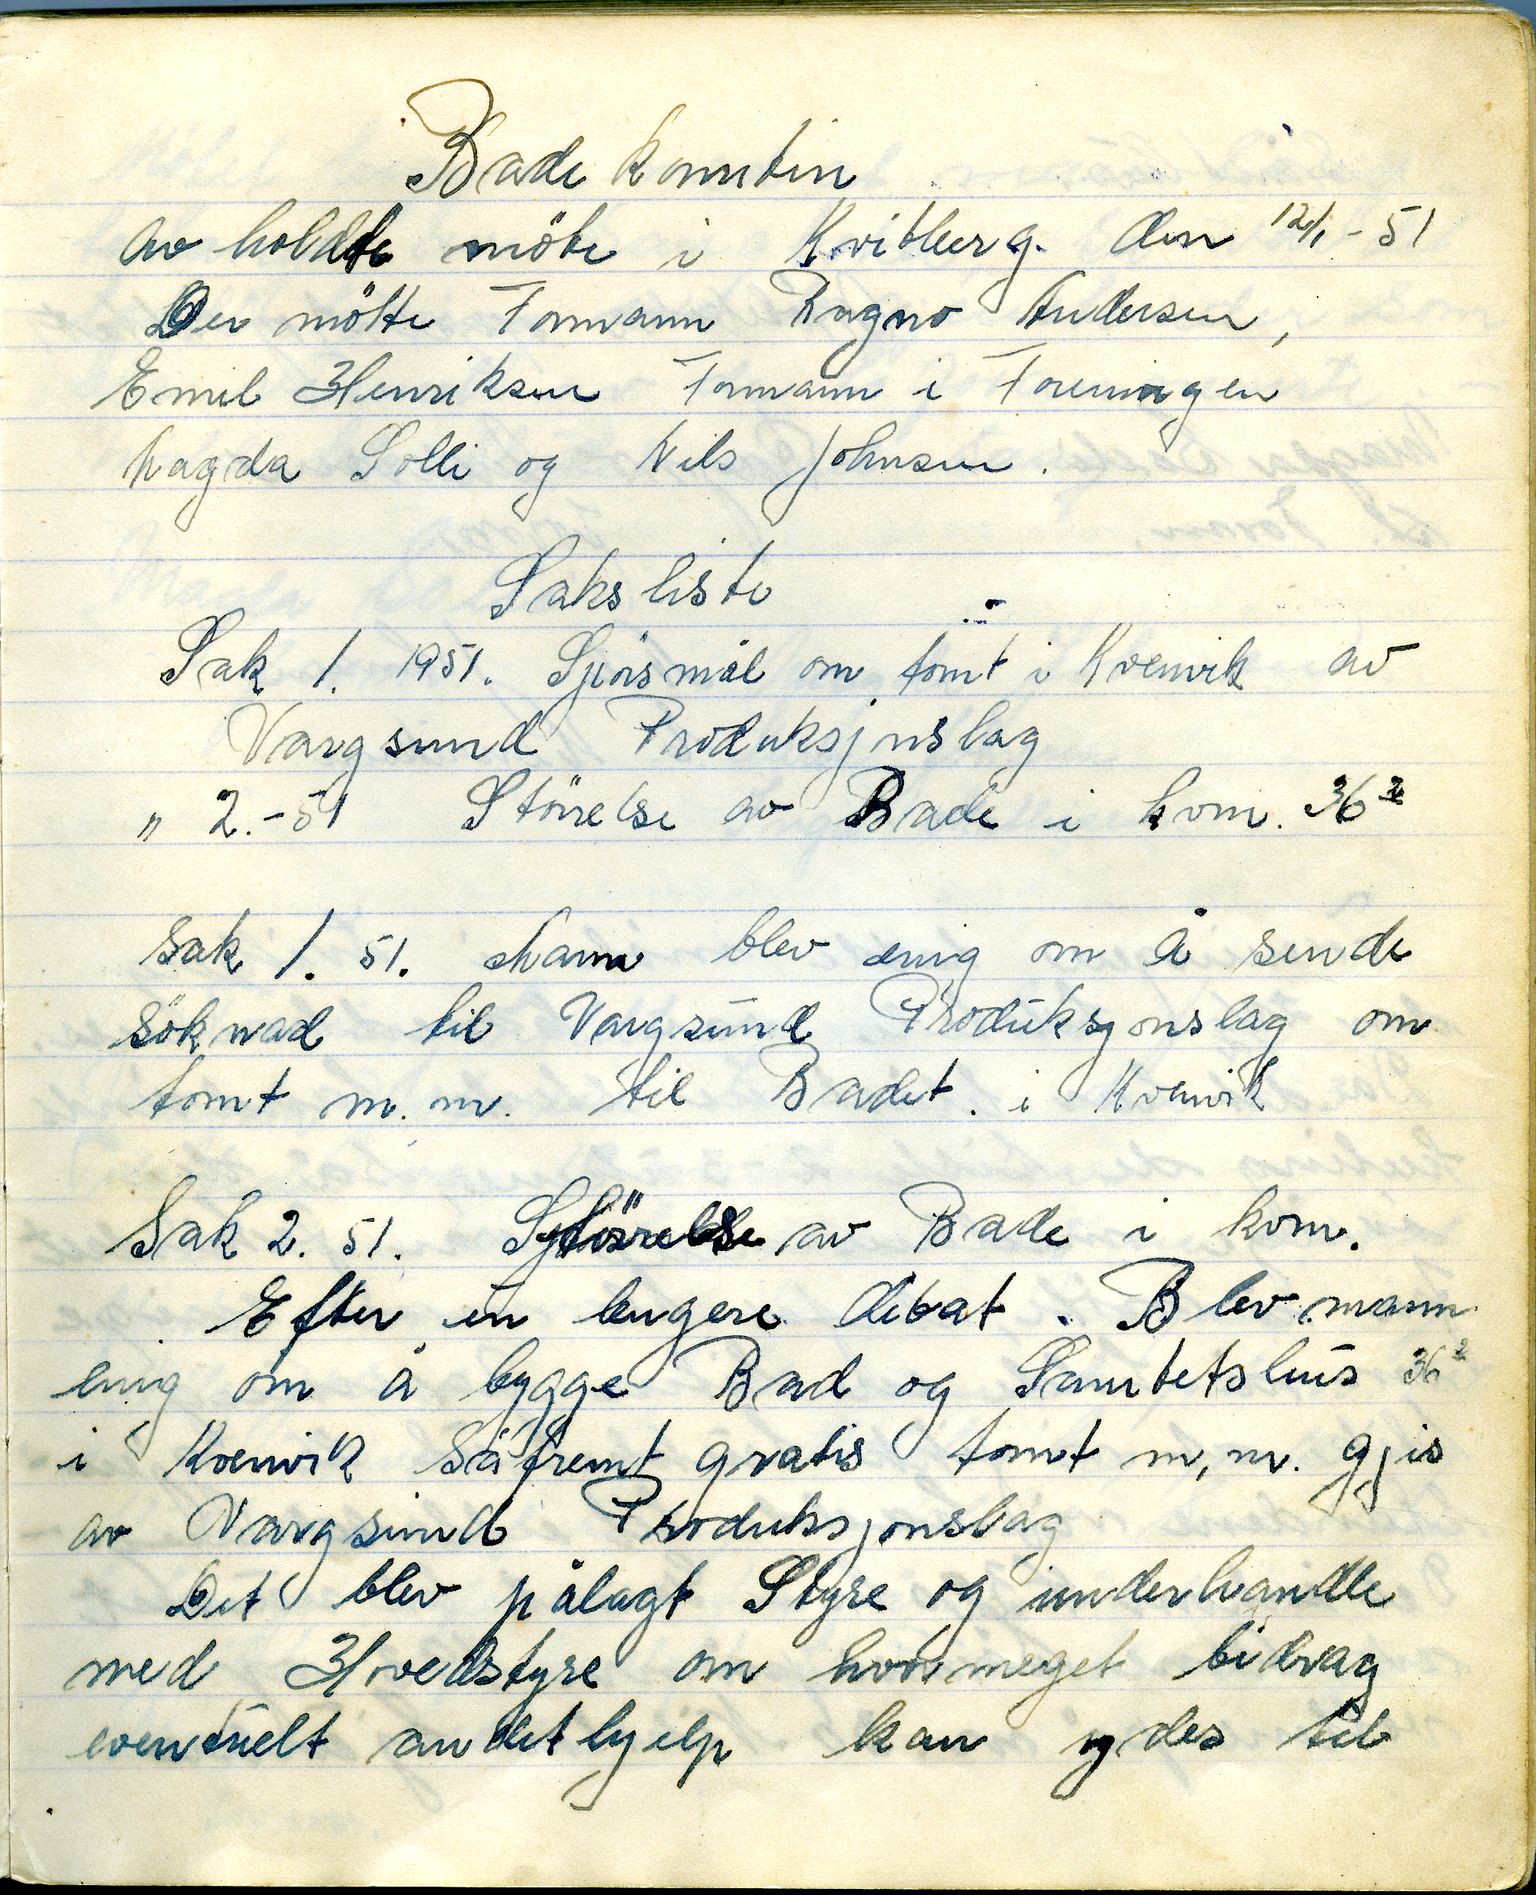 Bade komitin
av holdte möte i Kvibberg. den 12/1 - 51
Der mötte Formann Ragna Andersen,
Emil Henriksen Formann i Foreningen
Magda Solli og Nils Johnsen.
Saksliste
Sak 1. 1951. Spörsmål om tomt i Kvenvik av
Vargsund Produksjnslag
" 2.-51 Störrelse av Bade i kvm. 36²
Sak 1. 51. Mann blev enig om å sende
söknad til Vargsund Produksjonslag om
tomt m.m. til Badet. i Kvenvik
Sak 2. 51. Störrelse av Bade i kvm.
Efter en lengere debat. Blev mann
enig om å bygge Bad og Samtetshus 36²
i Kvenvik såfremt gratis tomt m,m. gjis
av Vargsund Produksjonslag
Det blev pålagt Styre og underhandle
med Hovedstyre om hvormeget bidrag
eventuelt andet hjelp kan ydes til